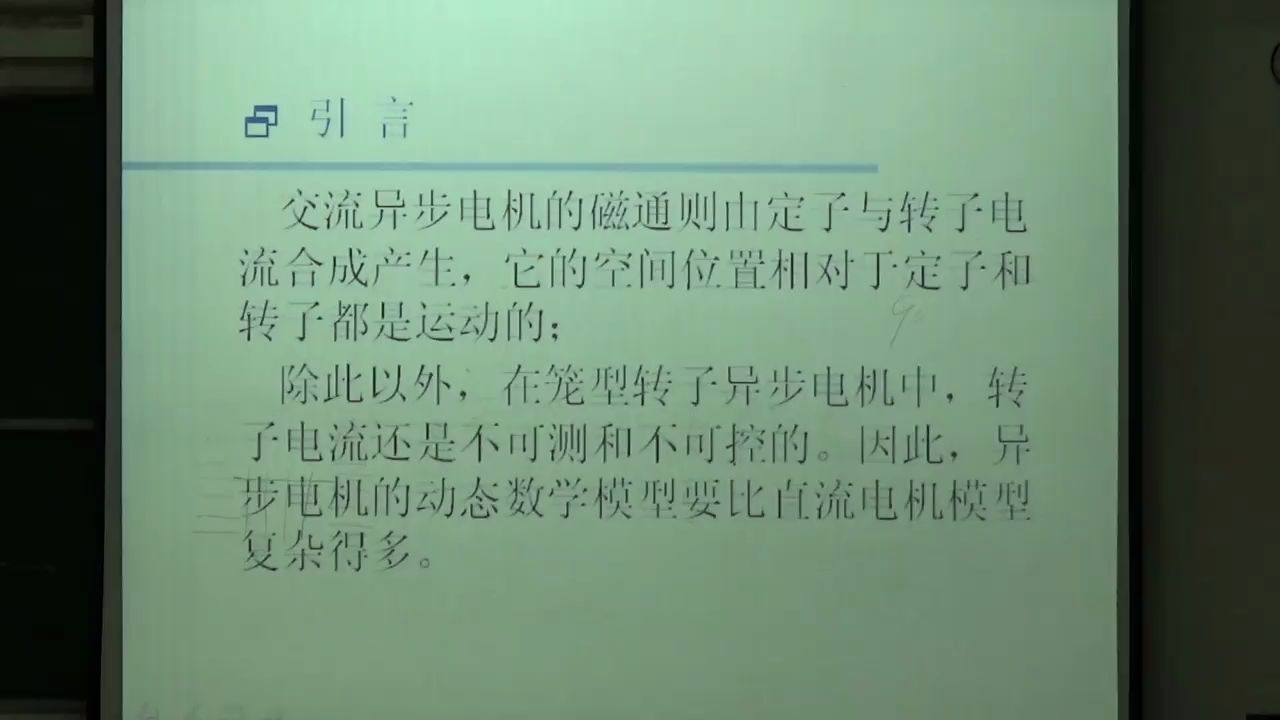 引 言
交流异步电机的磁通则由定子与转子电
流合成产生，它的空间位置相对于定子和
转子都是运动的；
除此以外，在笼型转子异步电机中，转
子电流还是不可测和不可控的。因此，异
步电机的动态数学模型要比直流电机模型
复杂得多。